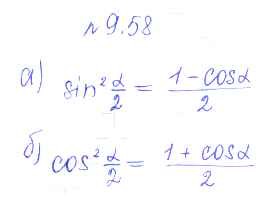 № 9.58
а) sin² α/2 = (1 - cosα)/2
б) cos² α/2 = (1 + cosα)/2